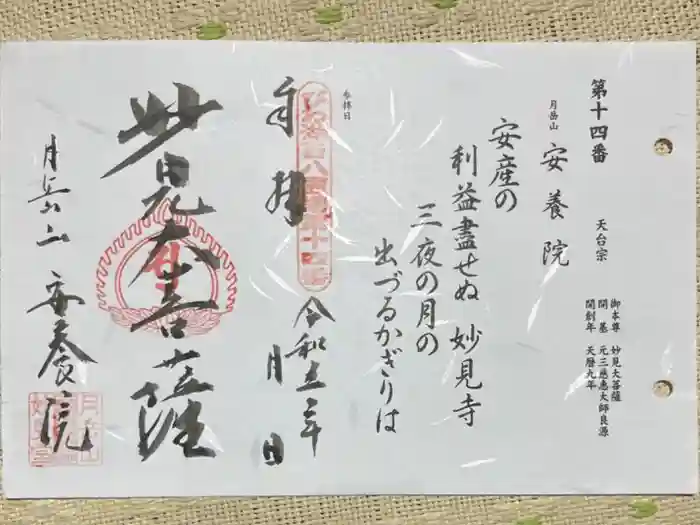 第十四番
天台宗
御本尊 妙見大菩薩
開基 元三慈恵大師良源
開創年 天暦九年
月岳山 安養院
安産の
利益盡せぬ 妙見寺
三夜の月の
出づるかぎりは
参拝日
奉拝
令和五年
月 日
妙見大菩薩
月岳山 安養院